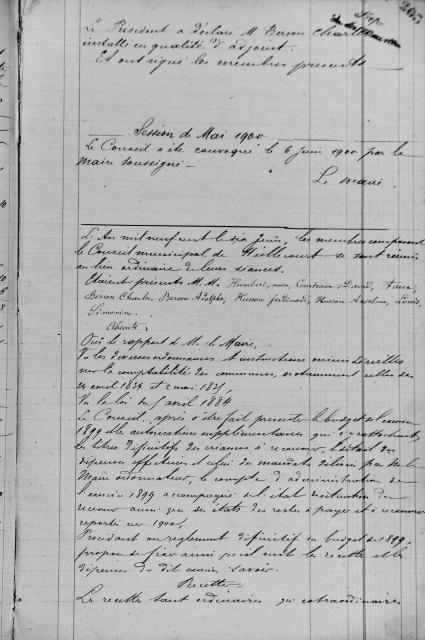 205
Le Président a déclaré M. Berson Charles
installé en qualité d'adjoint.
Et ont signé les membres présents
Session de Mai 1900
Le Conseil a été convoqué le 6 juin 1900 par le
Maire soussigné
Le maire
L'An mil neuf cent le dix Juin, les membres composant
le Conseil municipal de se sont réunis
au lieu ordinaire de leurs séances.
Etaient présents M. M. Humbert, maire,
Berson Charles, Berson Adolphe, Husson ferdinand, Husson Anselme, Louis,
Simonin.
Absents:
Ouï le rapport de M. le Maire,
Vu les diverses ordonnances & instructions ministérielles
sur la comptabilité des communes, notamment celles des
24 avril 1834 et 2 mai 1835
Vu la loi du 5 avril 1884
Le Conseil, après s'être fait présenter le budget de l'exercice
1899 et les autorisations supplémentaires qui s'y rattachent,
les titres définitifs des créances à recouvrer, l'état des
dépenses effectuées et celui des mandats délivrés par M. le
Maire ordonnateur, le compte d'administration de
l'exercice 1899 accompagné de l'état de situation du
receveur ainsi que des états des restes à payer et à recouvrer
reportés en 1900,
Procédant au règlement définitif du budget de 1899,
propose de fixer ainsi qu'il suit les recettes et les
dépenses du dit exercice, savoir.
Recettes
Les recettes tant ordinaires qu'extraordinaires